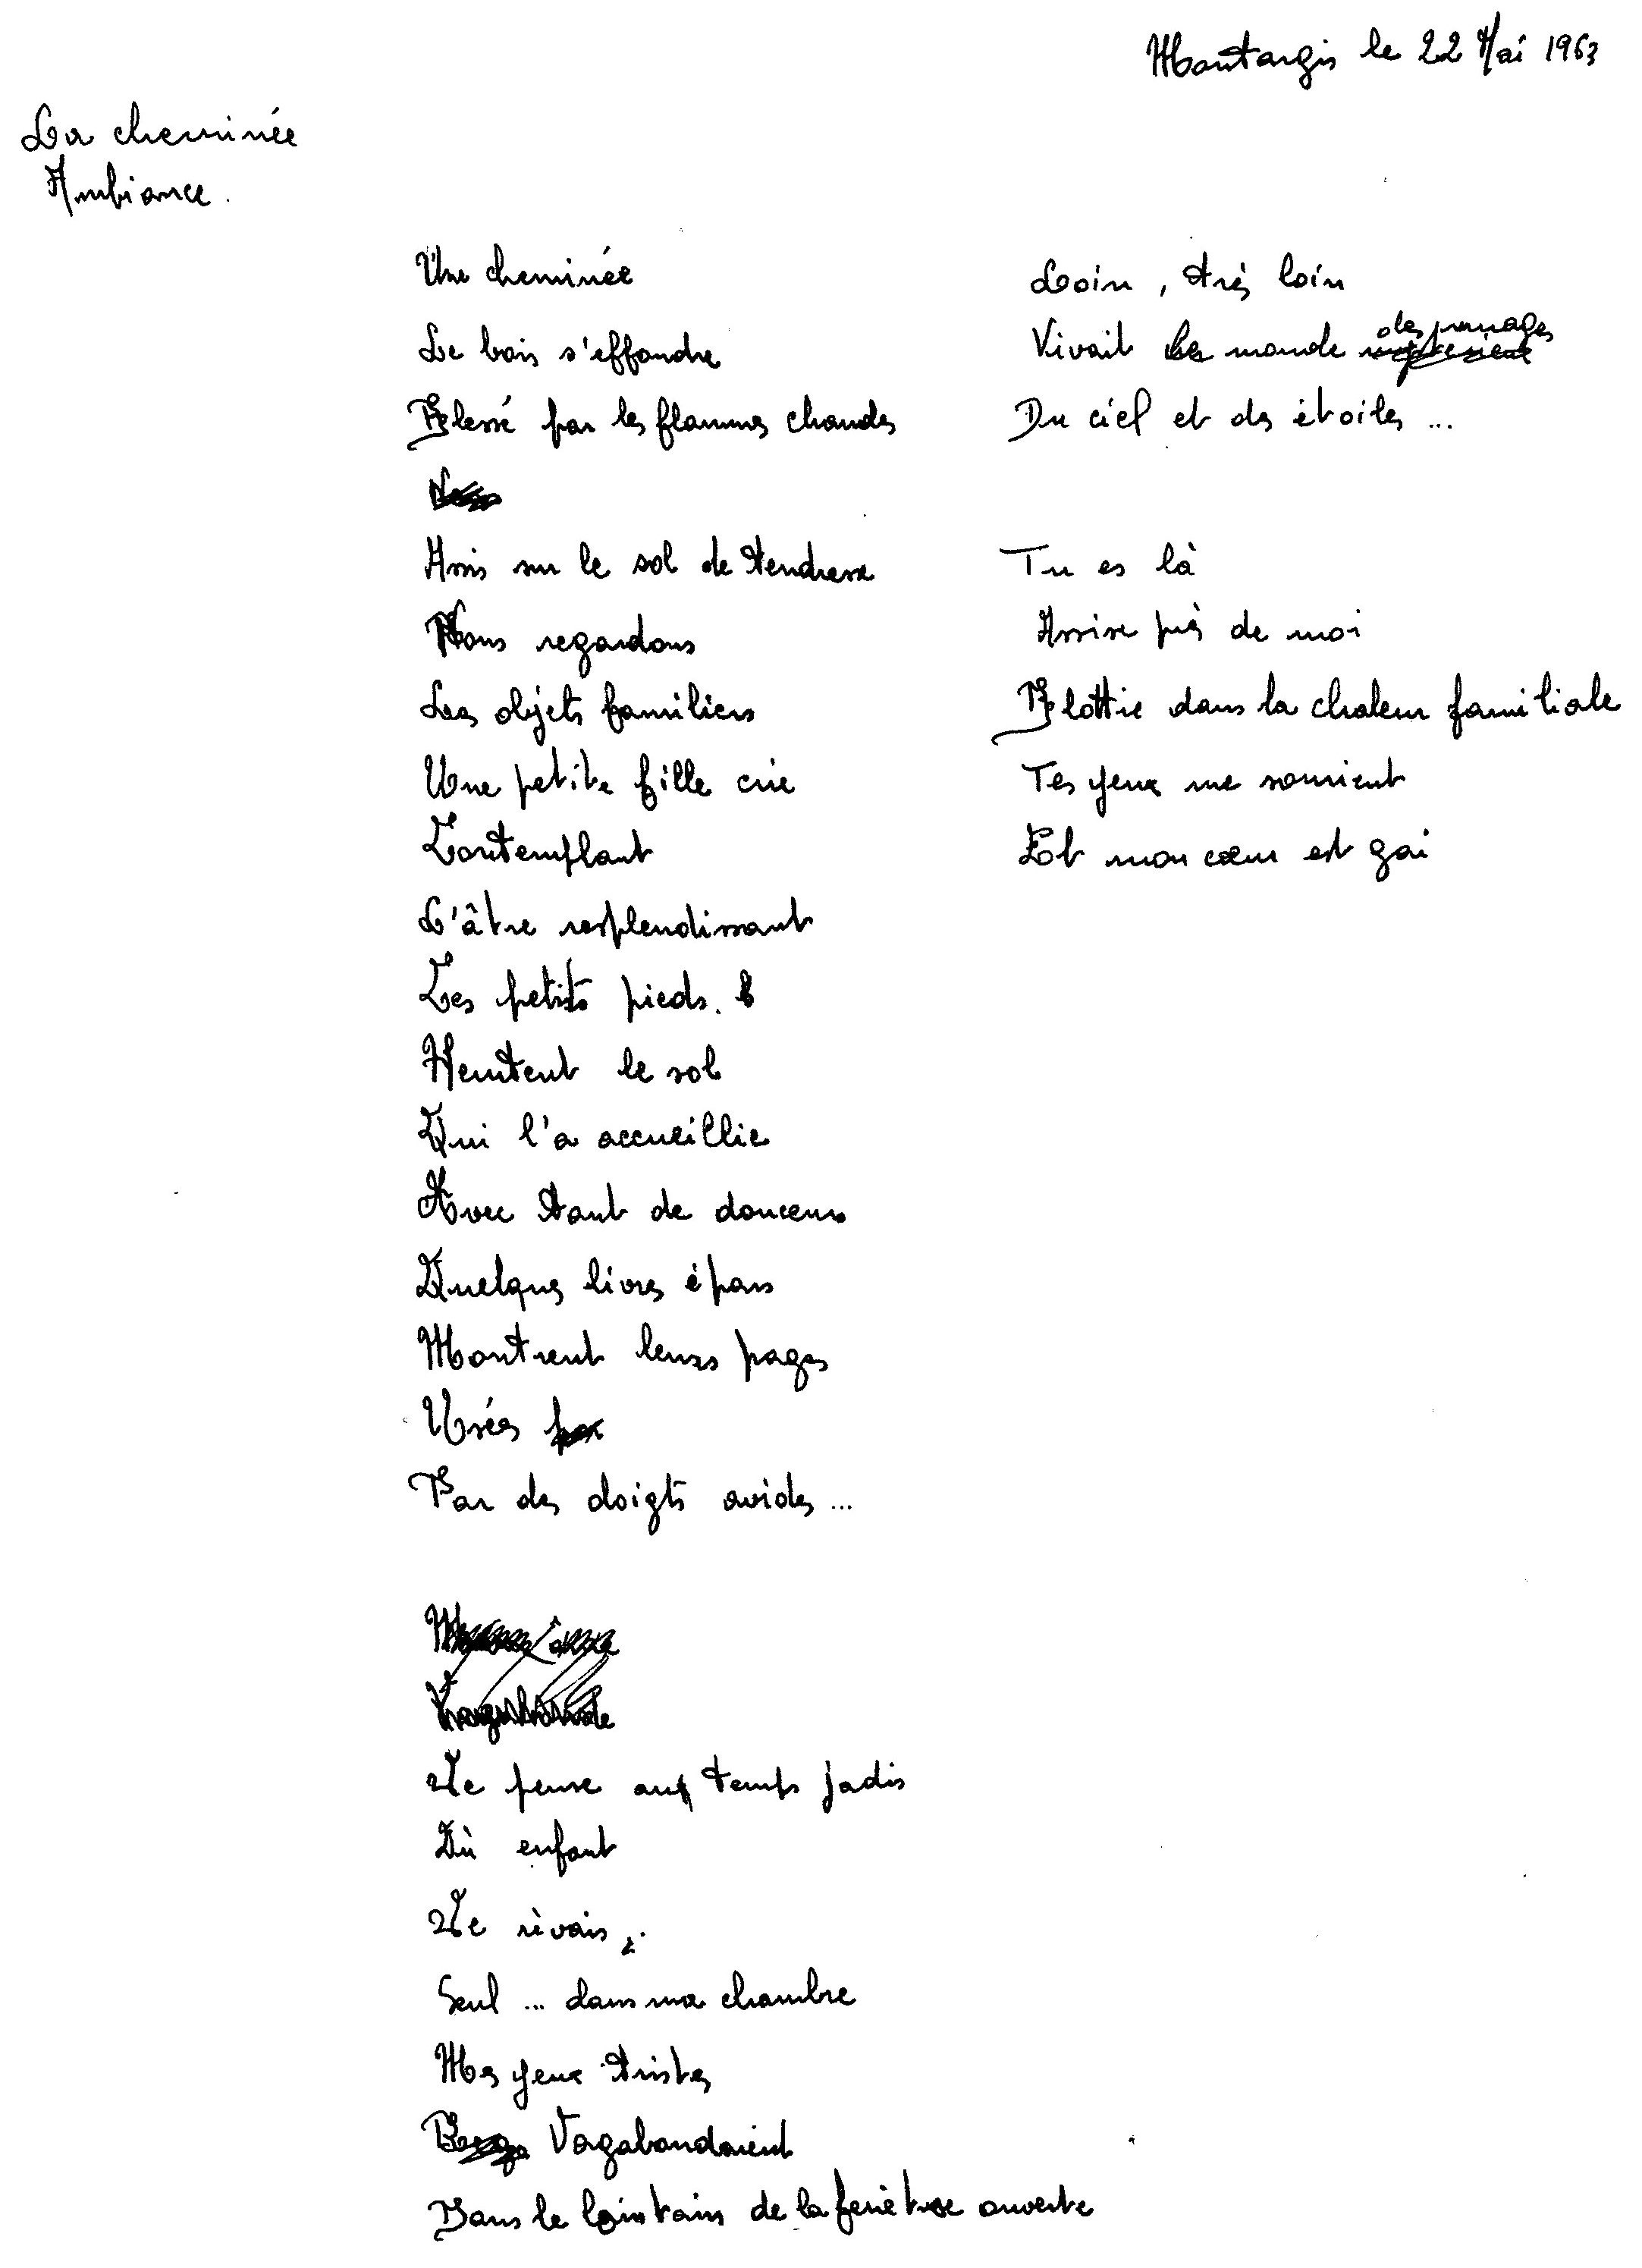 Montargis le 22 Mai 1963
La cheminée
Ambiance.
Une cheminée
Le bois s'effondre
Blessé par les flammes chaudes
Assis sur le sol de tendresse
Nous regardons
Les objets familiers
Une petite fille crie
Contemplant
L'âtre resplendissant
Ces petits pieds.
Heurtent le sol
Qui l'a accueillie
Avec tant de douceur
Quelques livres épars
Montrent leurs pages
Usées
Par des doigts avides ...
Vagabonde
Je pense aux temps jadis
Où enfant
Je rêvais
Seul ... dans ma chambre
Mes yeux tristes
Vagabondaient
Dans le lointain de la fenêtre ouverte
Loin, très loin
Vivait le monde des nuages
Du ciel et des étoiles ...
Tu es là
Assise près de moi
Blottie dans la chaleur familiale
Tes yeux me sourient
Et mon cœur est gai